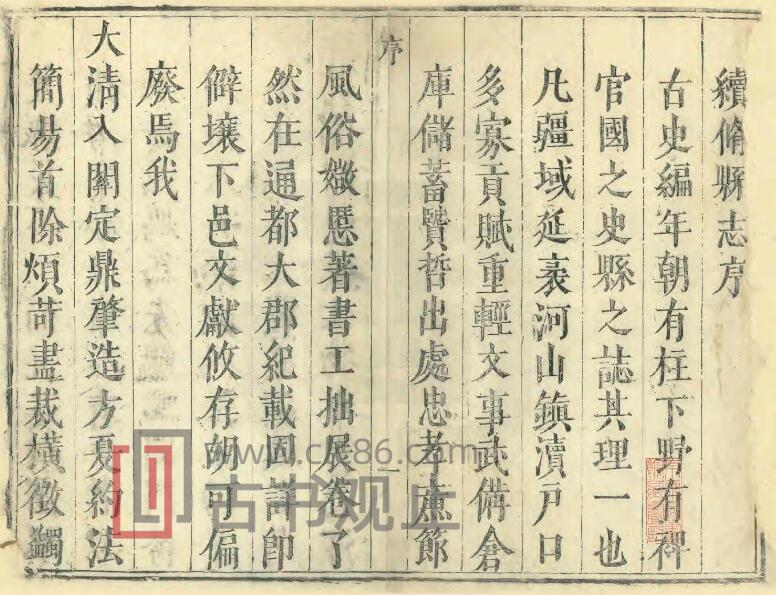 續脩縣志序
古史編年朝有柱下野有稗
官國之史縣之誌其理一也
凡疆域延袤河山鎮瀆戶口
多寡貢賦重輕文事武備倉
庫儲蓄賢哲出處忠孝廉節
序
一
風俗媺惡著書工拙展卷了
然在通都大郡紀載固詳卽
僻壤下邑文獻攸存胡可偏
廢焉我
大淸入關定鼎肇造方夏約法
簡易首除煩苛盡裁橫徵蠲
www.cn86.com
古书观止